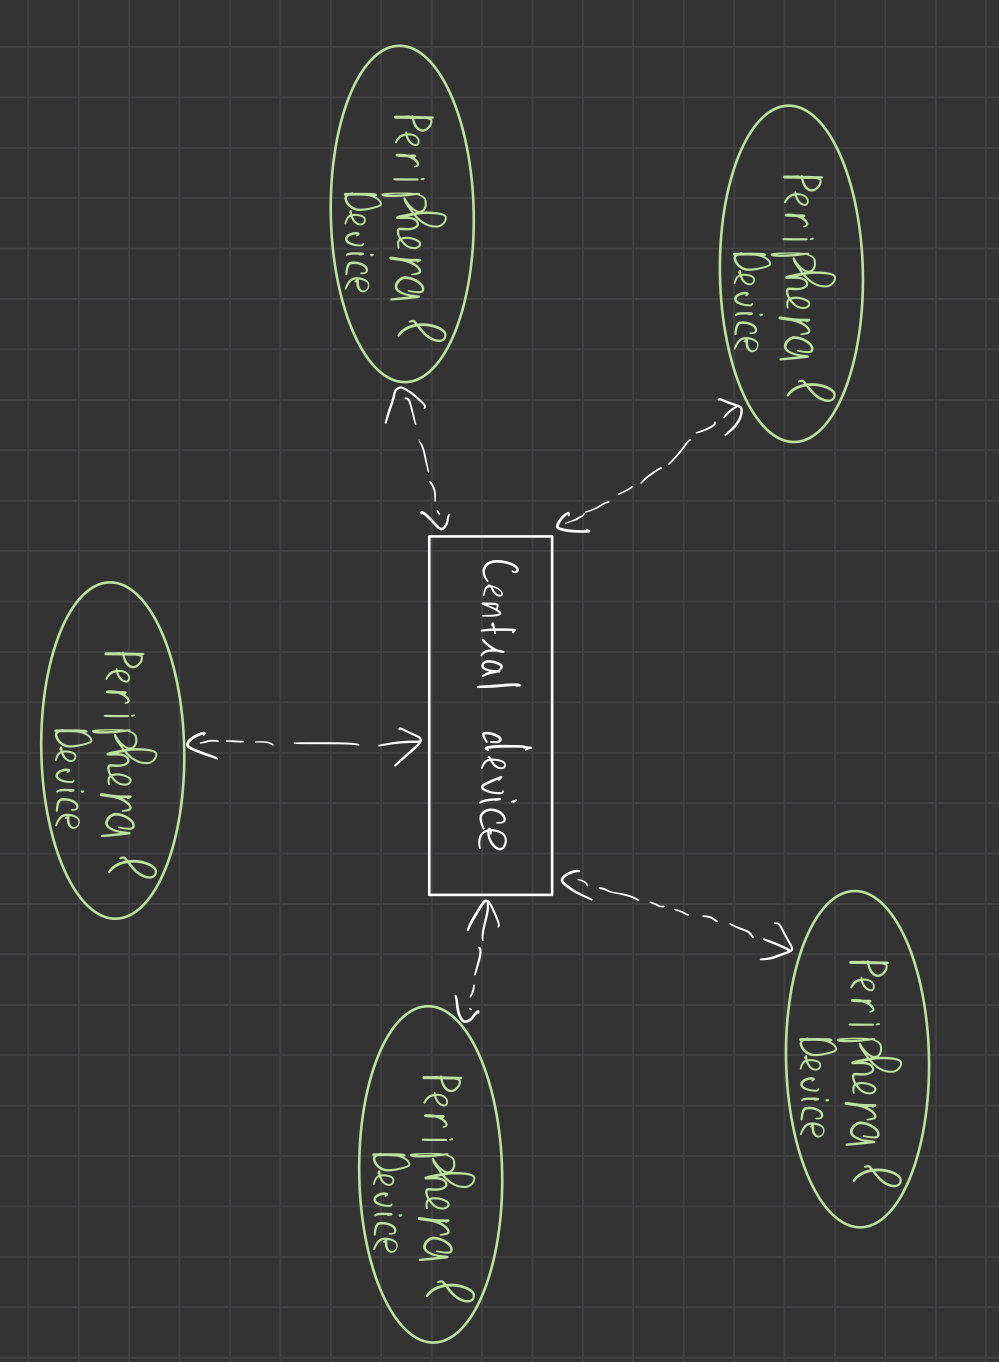 Peripheral
Device
Peripheral
Device
Central device
Peripheral
Device
Peripheral
Device
Peripheral
Device